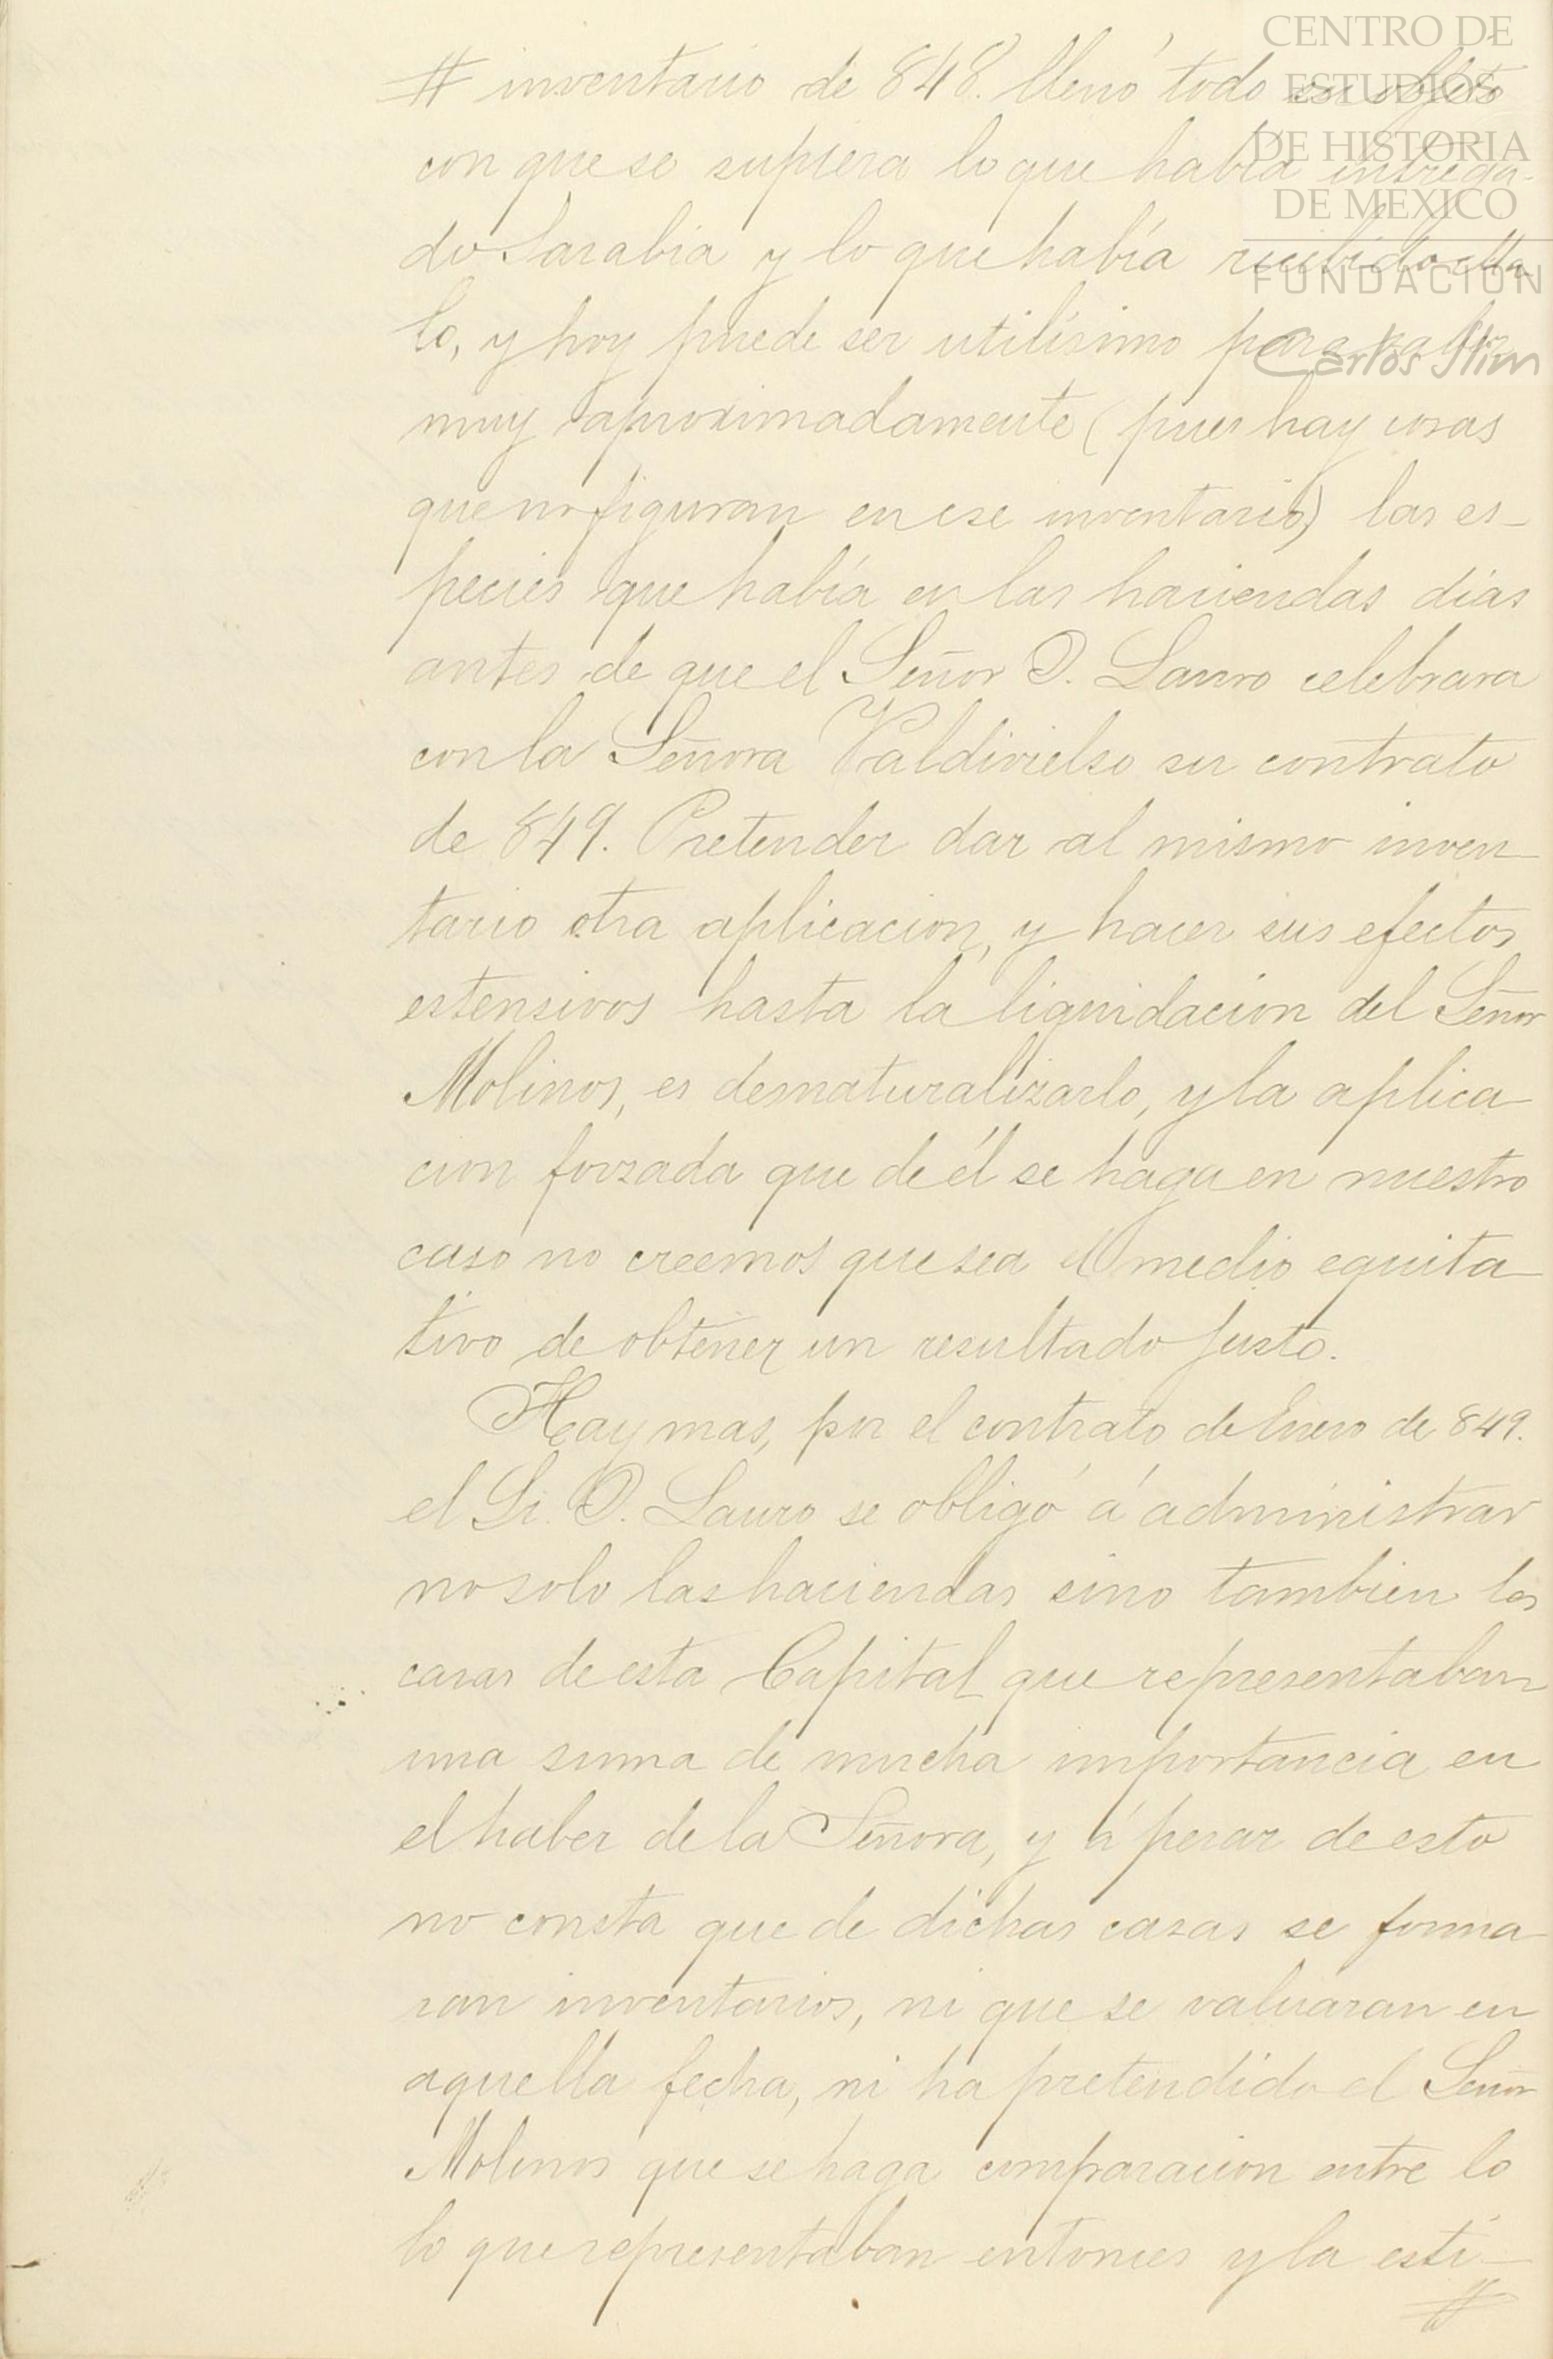 CENTRO DE
ESTUDIOS
DE HISTORIA
DE MEXICO
FUNDACIÓN
Carlos Slim
# inventario de 848. llenó todo su objeto
con que se supiera lo que había entrega-
do Sarabia y lo que había recibido Ma-
lo, y hoy puede ser utilísimo para saber
muy aproximadamente (pues hay cosas
que no figuran en ese inventario) las es-
pecies que había en las haciendas días
antes de que el Señor D. Lauro celebrara
con la Señora Valdivielso su contrato
de 849. Pretender dar al mismo inven-
tario otra aplicacion, y hacer sus efectos
estensivos hasta la liquidacion del Señor
Molinos, es desnaturalizarlo, y la aplica-
cion forzada que de él se haga en nuestro
caso no creemos que sea el medio equita-
tivo de obtener un resultado justo.
Hay mas, por el contrato de Enero de 849.
el Sr. D. Lauro se obligó á administrar
no solo las haciendas sino tambien las
casas de esta Capital que representaban
una suma de mucha importancia en
el haber de la Señora, y á pesar de esto
no consta que de dichas casas se forma-
ran inventarios, ni que se valuaran en
aquella fecha, ni ha pretendido el Señor
Molinos que se haga comparacion entre lo
lo que representaban entonces y la esti-
#